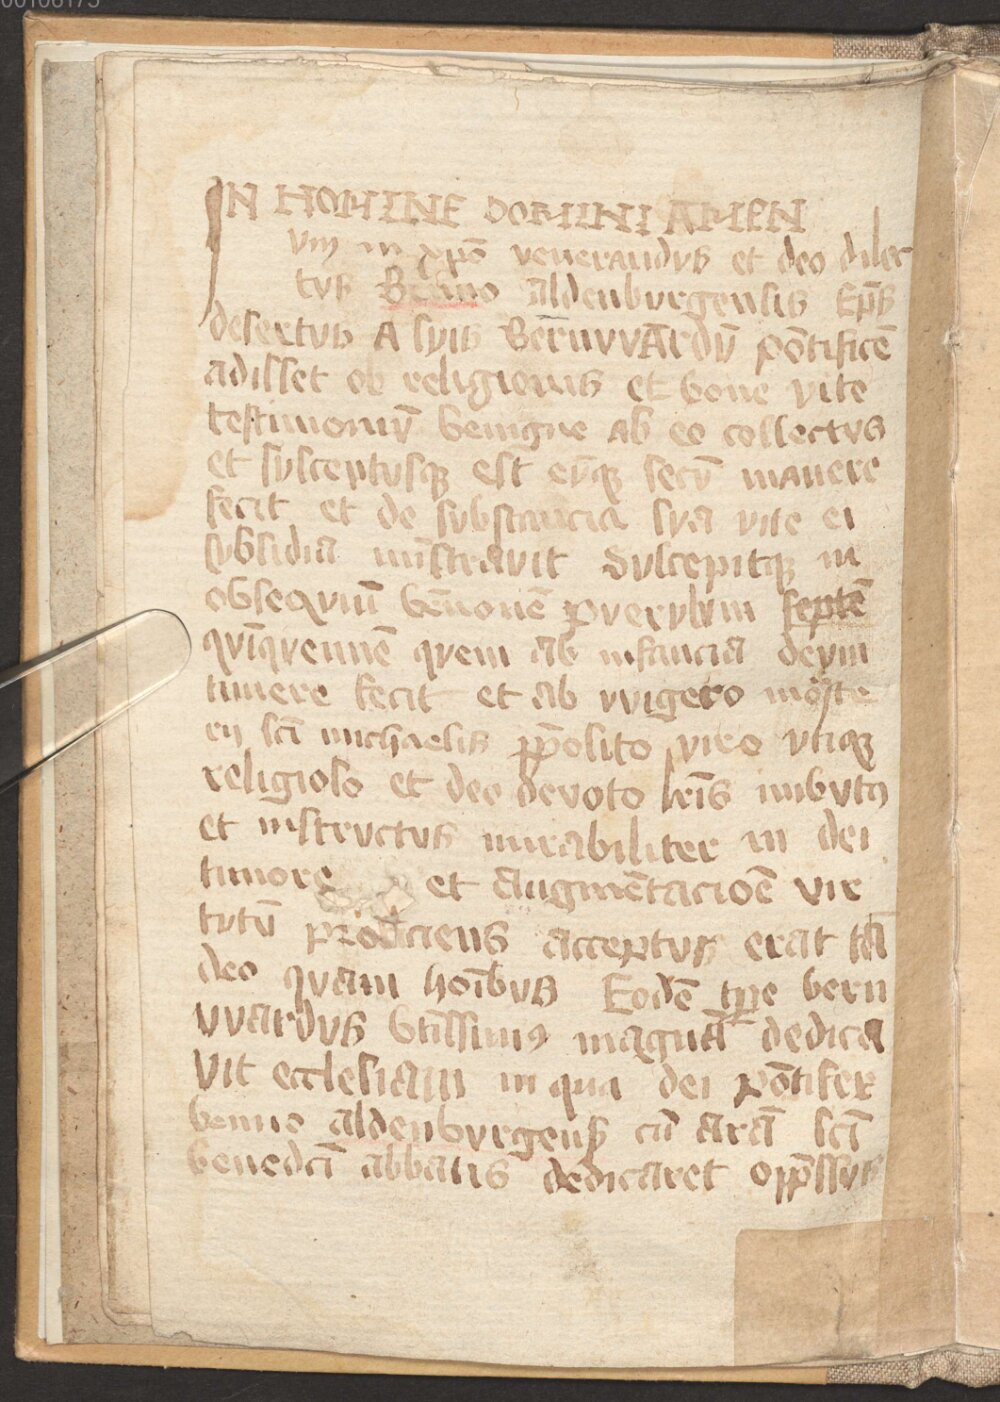 00106175
IN NOMINE DOMINI AMEN
Vm in xpō venerandus et deo dilec
tus Benno aldenburgensis Ep̄s
desertus A suis Bernvvardū pōtificē
adisset ob religionis et bone vite
testimoniū benigne ab eo collectus
et susceptusq; est eūq; secū manere
fecit et de substancia sua vite ei
subsidia mīstravit Suscepitq; in
obsequiū bennonē puerulum septē
quīquennē quem ab infancia deum
timere fecit et ab vvigero moste
rij sci michaelis p̄posito viro utiq;
religioso et deo devoto lrīs imbutꝰ
et instructus mirabiliter in dei
timore et augmētacioē vir
tutū proficiens acceptus erat tā
deo quam hoībus Eodē tp̄re bern
vvardus btissimꝰ magnā dedica
vit ecclesiam in qua dei pōtifex
benno aldenburgens cū arā sci
benedci abbatis dedicaret opp̄ssus